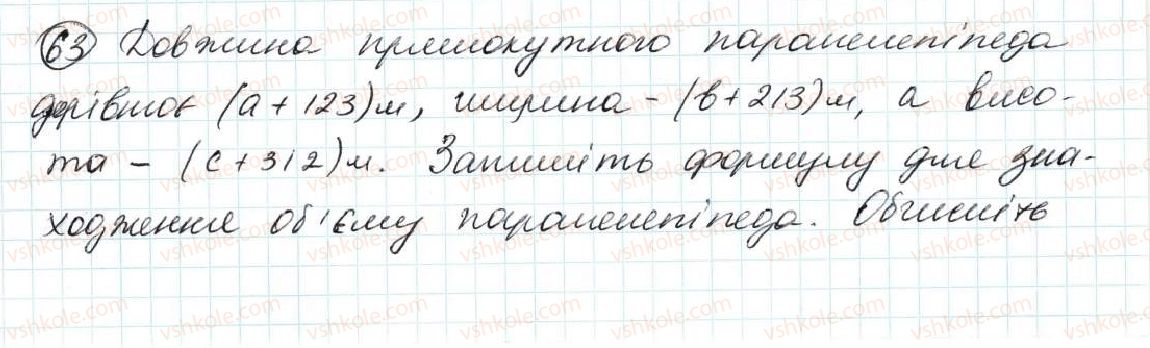 63 Довжина прямокутного паралелепіпеда
дорівнює (a + 123) м, ширина - (b + 213) м, а висо-
та - (c + 312) м. Запишіть формулу для зна-
ходження об'єму паралелепіпеда. Обчисліть